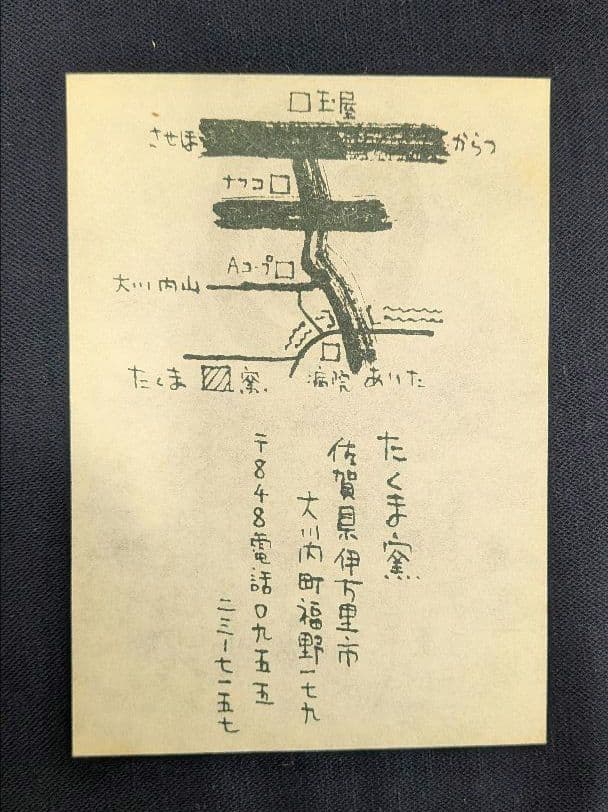 玉屋
させほ
からつ
ナフコ
Aコープ
大川内山
たくま
窯
病院
ありた
たくま窯
佐賀県伊万里市
大川内町福野一七九
〒848電話〇九五五
二三ー七一五七